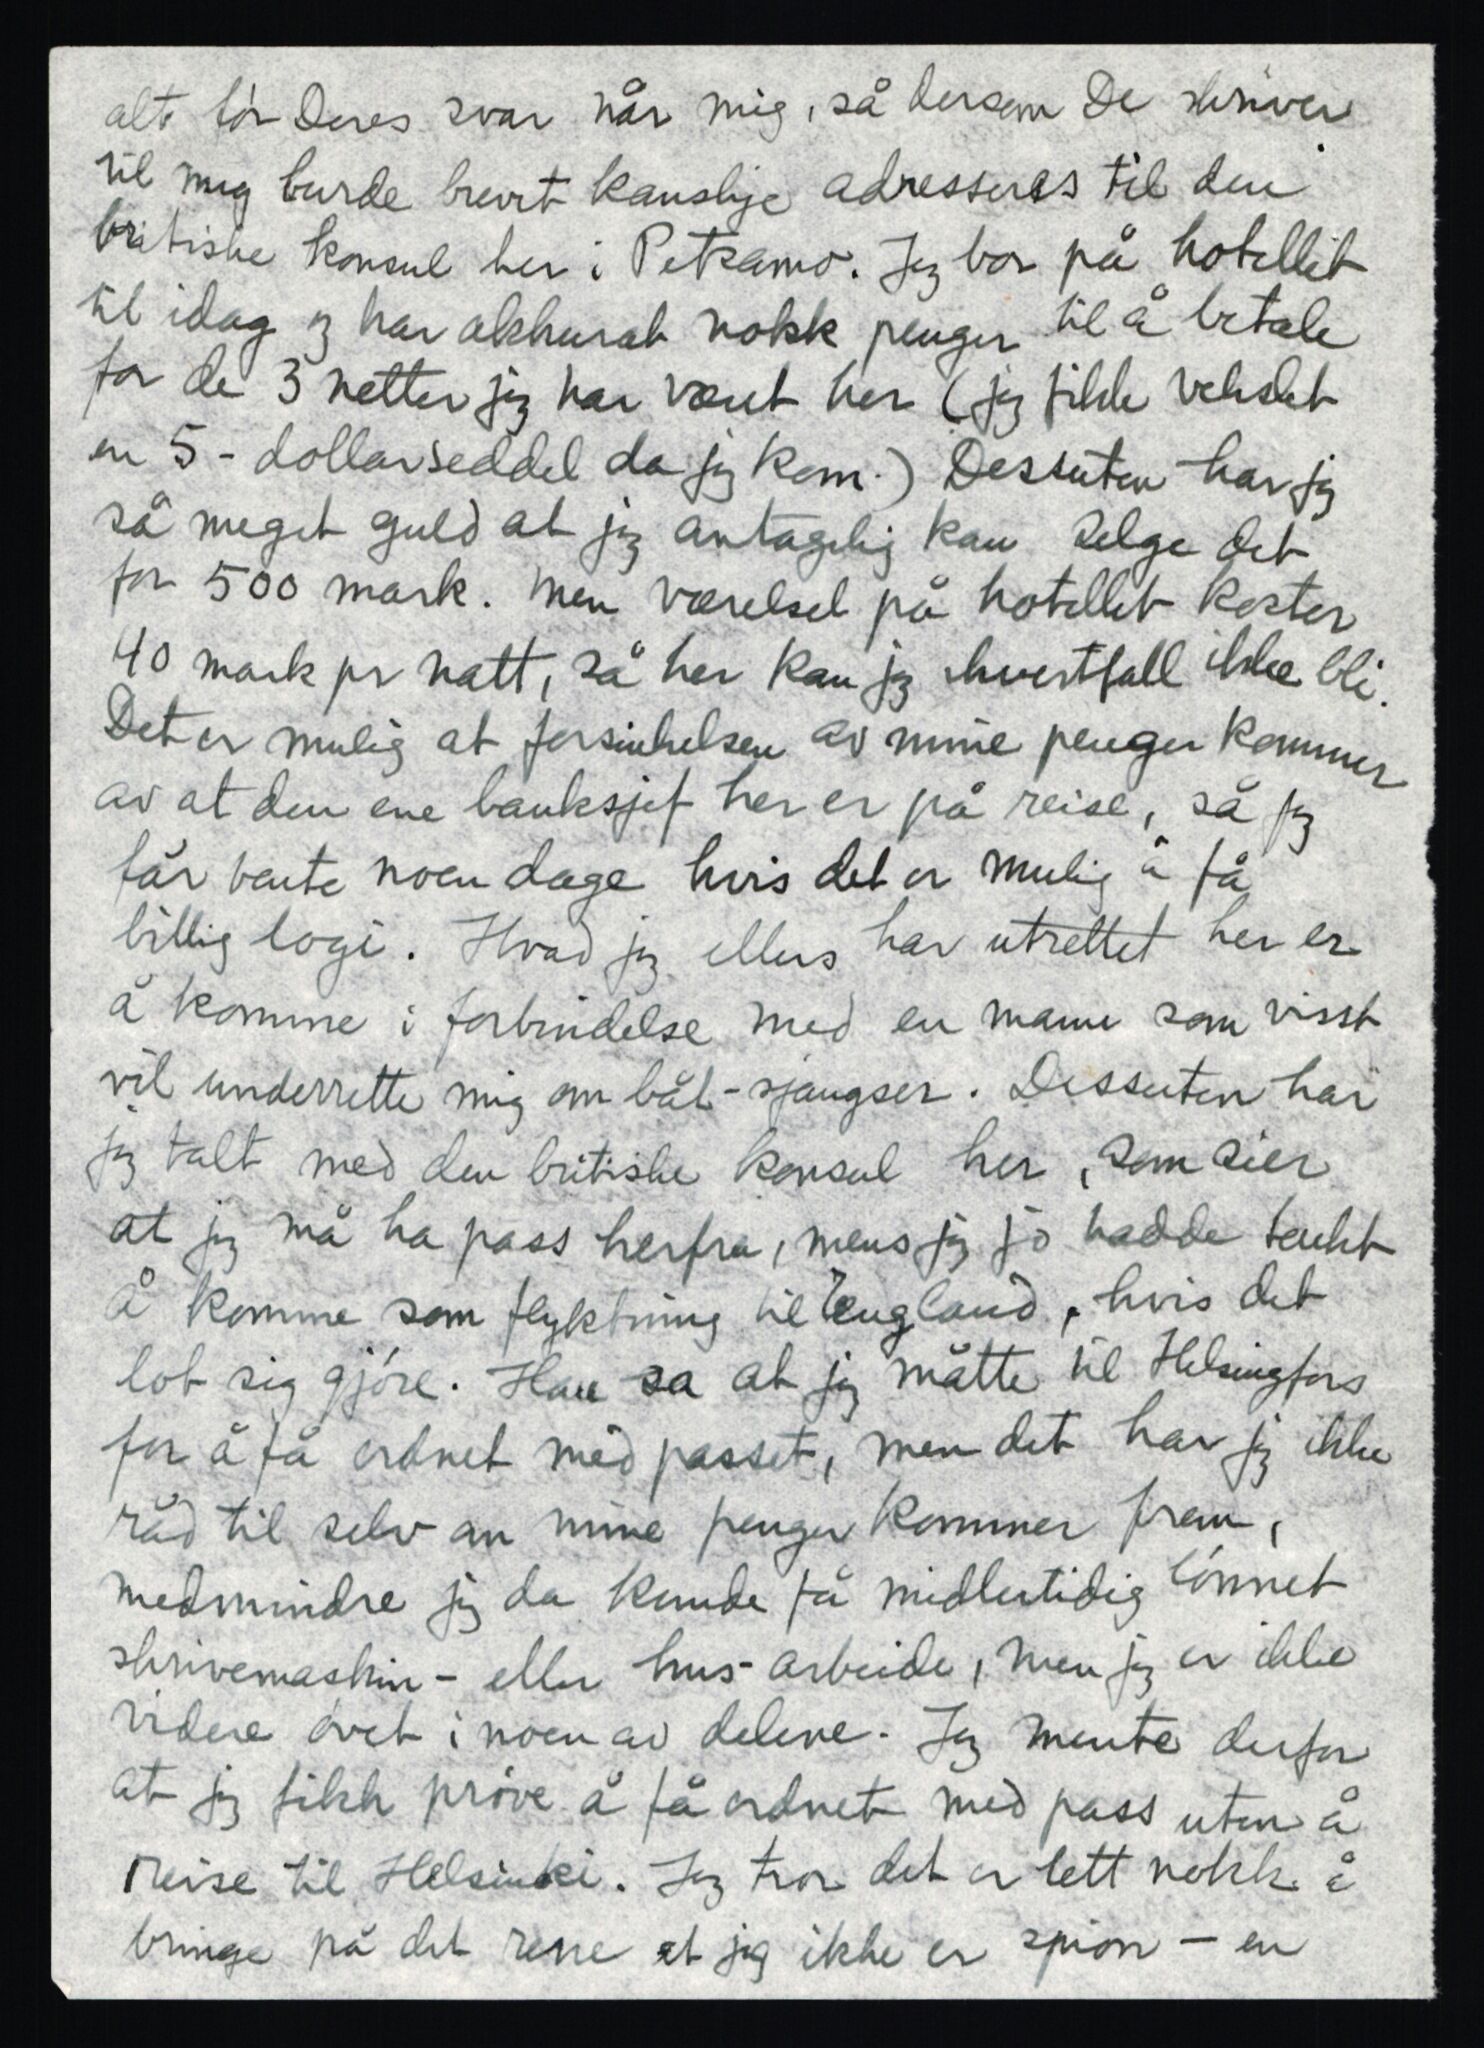 alt før Deres svar når mig, så dersom De skriver
til mig burde brevet kanskje adresseres til den
britiske konsul her i Petsamo. Jeg bor på hotellet
til idag og har akkurat nokk penger til å betale
for de 3 netter jeg har været her (jeg fikk vekslet
en 5-dollarseddel da jeg kom.) Dessuten har jeg
så meget guld at jeg antagelig kan selge det
for 500 mark. Men værelset på hotellet koster
40 mark pr natt, så her kan jeg ihvertfall ikke bli.
Det er mulig at forsinkelsen av mine penger kommer
av at den ene banksjef her er på reise, så jeg
får vente noen dage hvis det er mulig å få
billig logi. Hvad jeg ellers har utrettet her er
å komme i forbindelse med en mann som visst
vil underrette mig om båt-sjangser. Dessuten har
jeg talt med den britiske konsul her, som sier
at jeg må ha pass herfra, mens jeg jo hadde tenkt
å komme som flyktning til England, hvis det
lot sig gjøre. Han sa at jeg måtte til Helsingfors
for å få ordnet med passet, men det har jeg ikke
råd til selv om mine penger kommer frem,
medmindre jeg da kunde få midlertidig lønnet
skrivemaskin- eller hus-arbeide, men jeg er ikke
videre øvet i noen av delene. Jeg mente derfor
at jeg fikk prøve å få ordnet med pass uten å
reise til Helsinki. Jeg tror det er lett nokk å
bringe på det rene at jeg ikke er spion – en